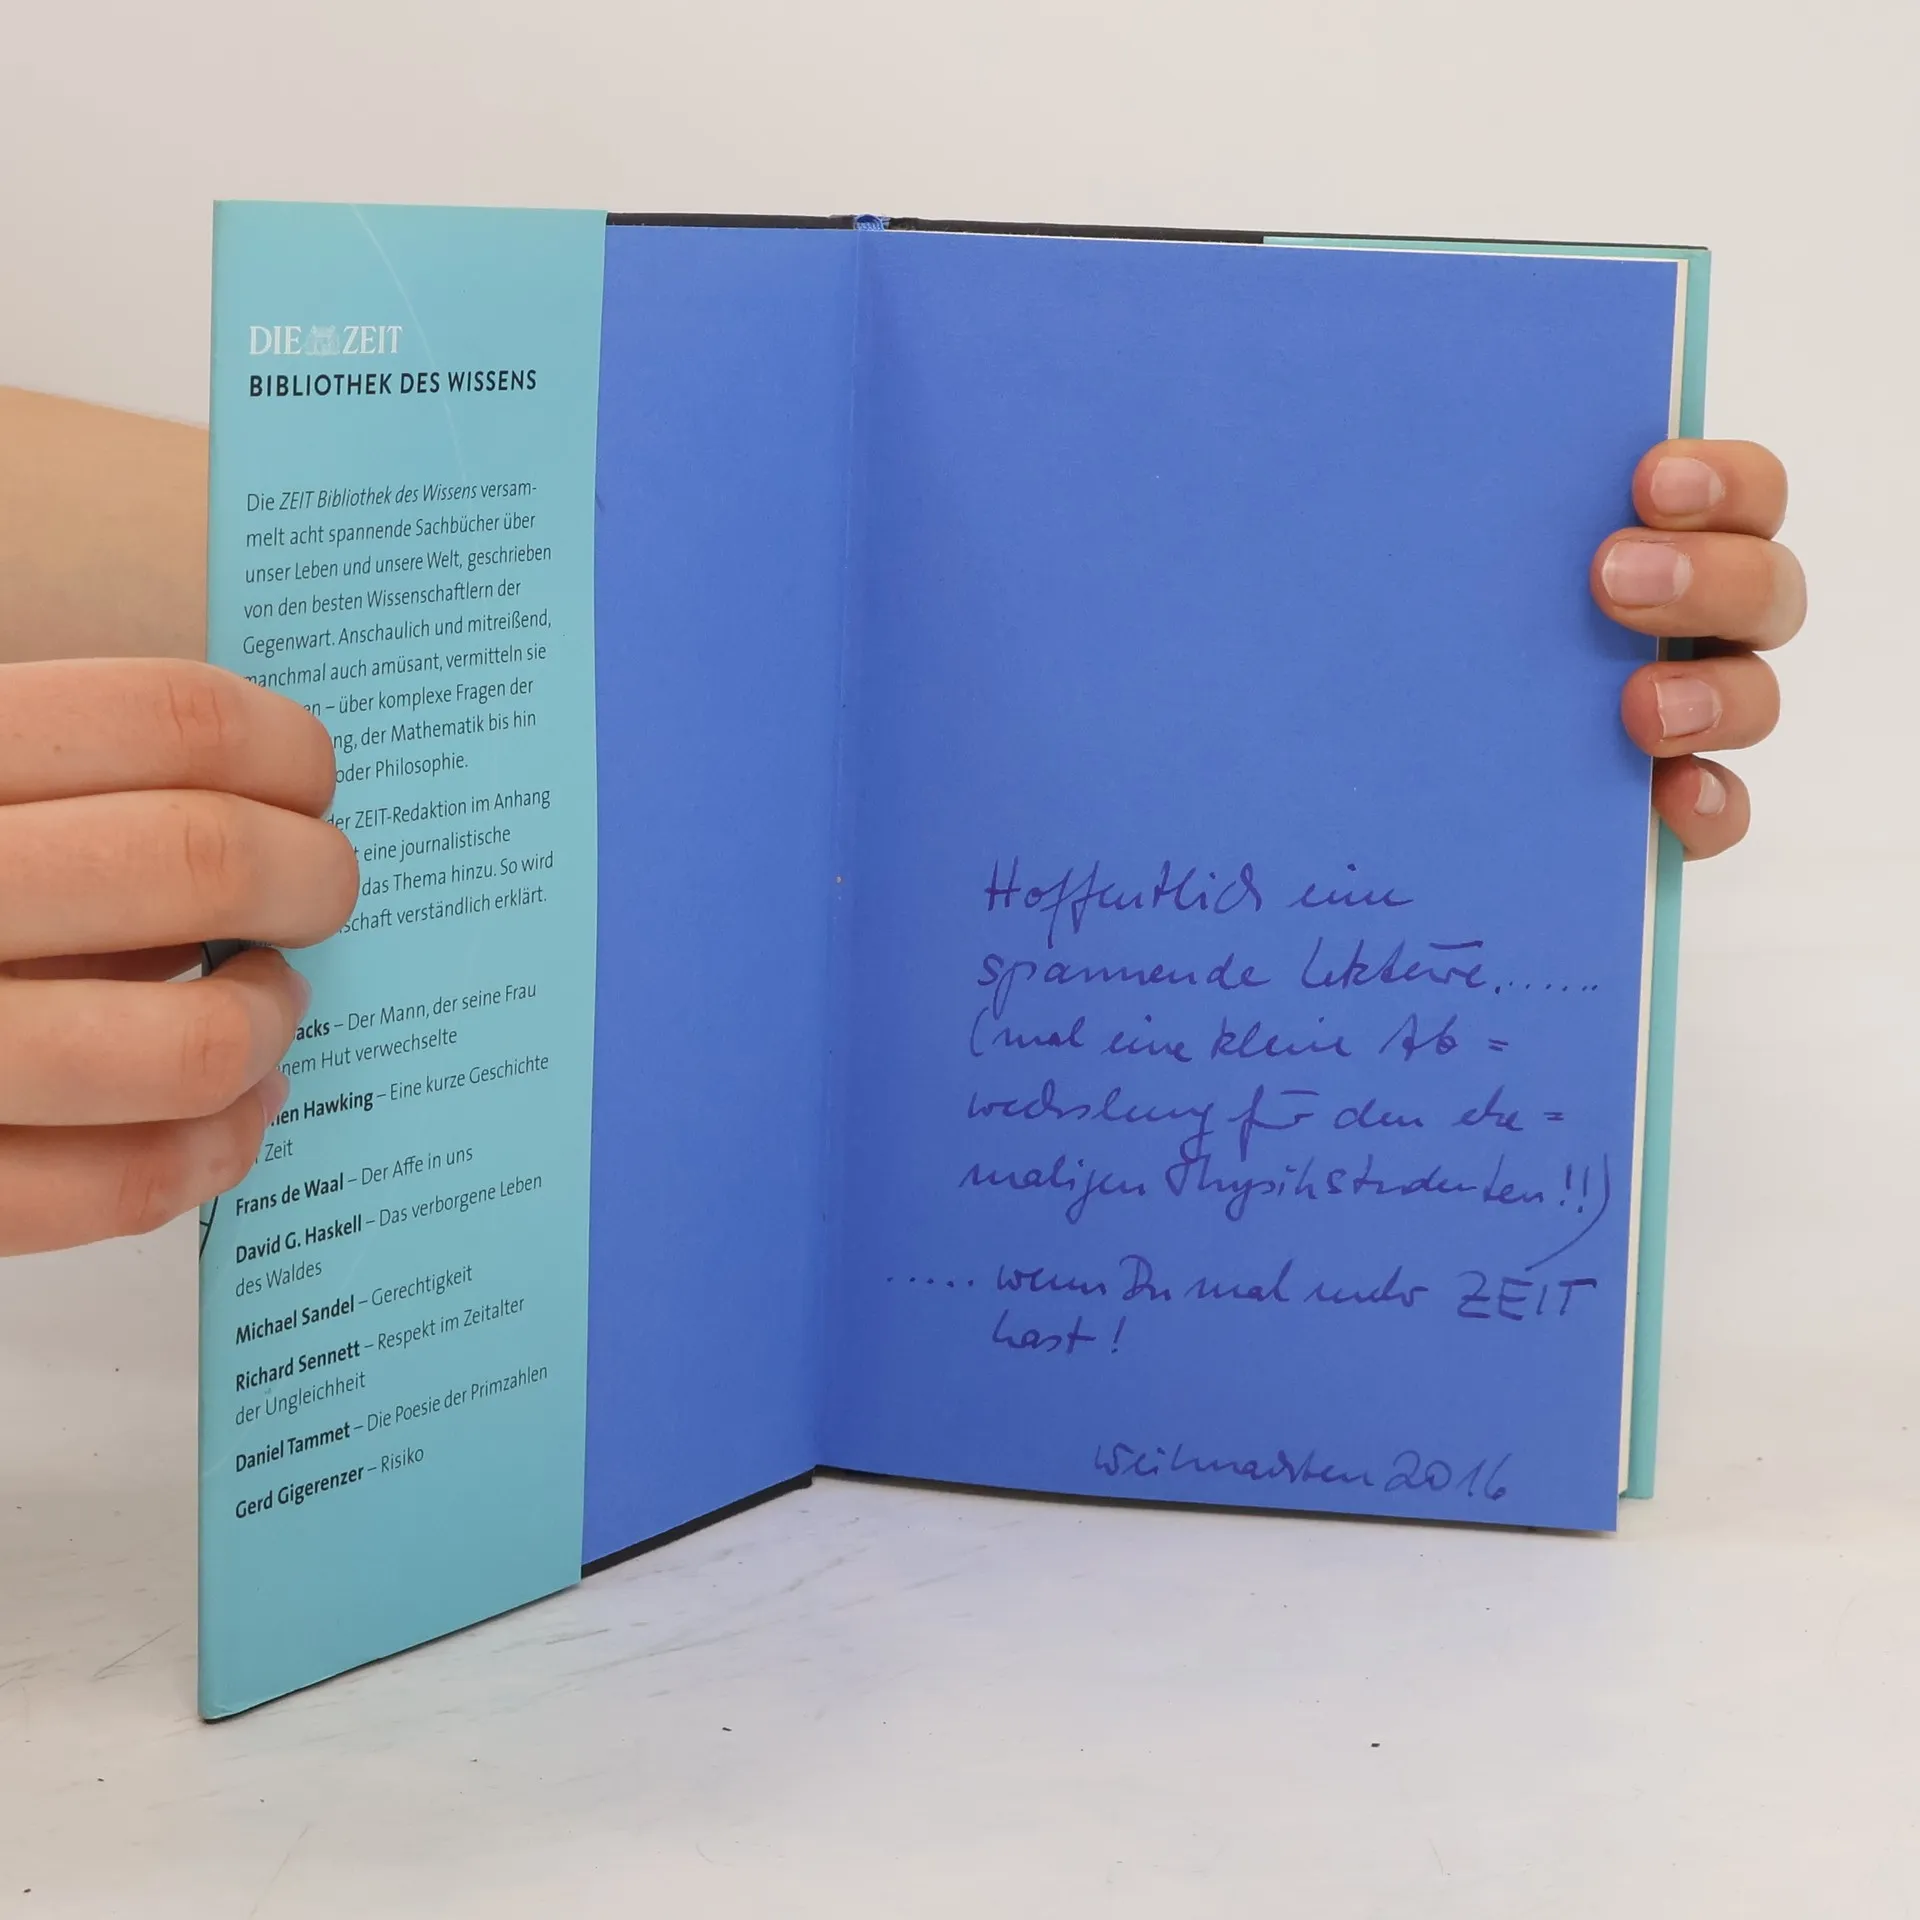 DIE ZEIT
BIBLIOTHEK DES WISSENS
Die ZEIT Bibliothek des Wissens versam-
melt acht spannende Sachbücher über
unser Leben und unsere Welt, geschrieben
von den besten Wissenschaftlern der
Gegenwart. Anschaulich und mitreißend,
manchmal auch amüsant, vermitteln sie
en – über komplexe Fragen der
ng, der Mathematik bis hin
oder Philosophie.
der ZEIT-Redaktion im Anhang
t eine journalistische
das Thema hinzu. So wird
schaft verständlich erklärt.
acks – Der Mann, der seine Frau
nem Hut verwechselte
hen Hawking – Eine kurze Geschichte
r Zeit
Frans de Waal – Der Affe in uns
David G. Haskell – Das verborgene Leben
des Waldes
Michael Sandel – Gerechtigkeit
Richard Sennett – Respekt im Zeitalter
der Ungleichheit
Daniel Tammet – Die Poesie der Primzahlen
Gerd Gigerenzer – Risiko
Hoffentlich eine
spannende Lektüre.......
(mal eine kleine Ab=
wechslung für den ehe=
maligen Physikstudenten!!)
..... wenn Du mal mehr ZEIT
hast!
Weihnachten 2016